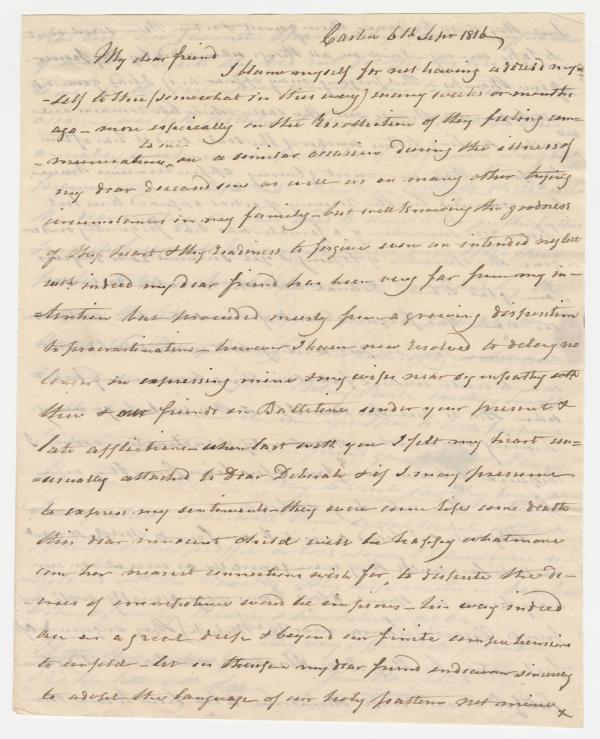 6th Sepr 1816
My dear friend
I blame myself for not having addressed my=
-self to thee (somewhat in this way) many weeks or months
ago – more especially on the recollection of thy feeling com=
to me
-munication, on a similar occasion during the illness of
my dear deceased son as well as on many other trying
circumstances in my family – but well knowing the goodness
of thy heart & thy readiness to forgive even an intended neglect
such indeed my dear friend has been very far from my in-
=tention but proceeded merely from a growing disposition
to procrastination – however I have now resolved to delay no
longer in expressing mine & my wifes near sympathy with
thee & our friends in under your present &
late afflictions – when last with you I felt my heart un=
=usually attached to Dear Deborah & if I may presume
to express my sentiments – they were come life come death
this dear innocent child will be happy what more
can her nearest connections wish for, to dispute the de-
-crees of omnipotence would be impious – his ways indeed
are in a great deep & beyond our finite comprehension
to unfold – let us therefore my dear friend endeavour sincerely
to adopt the language of our holy pattern not mine